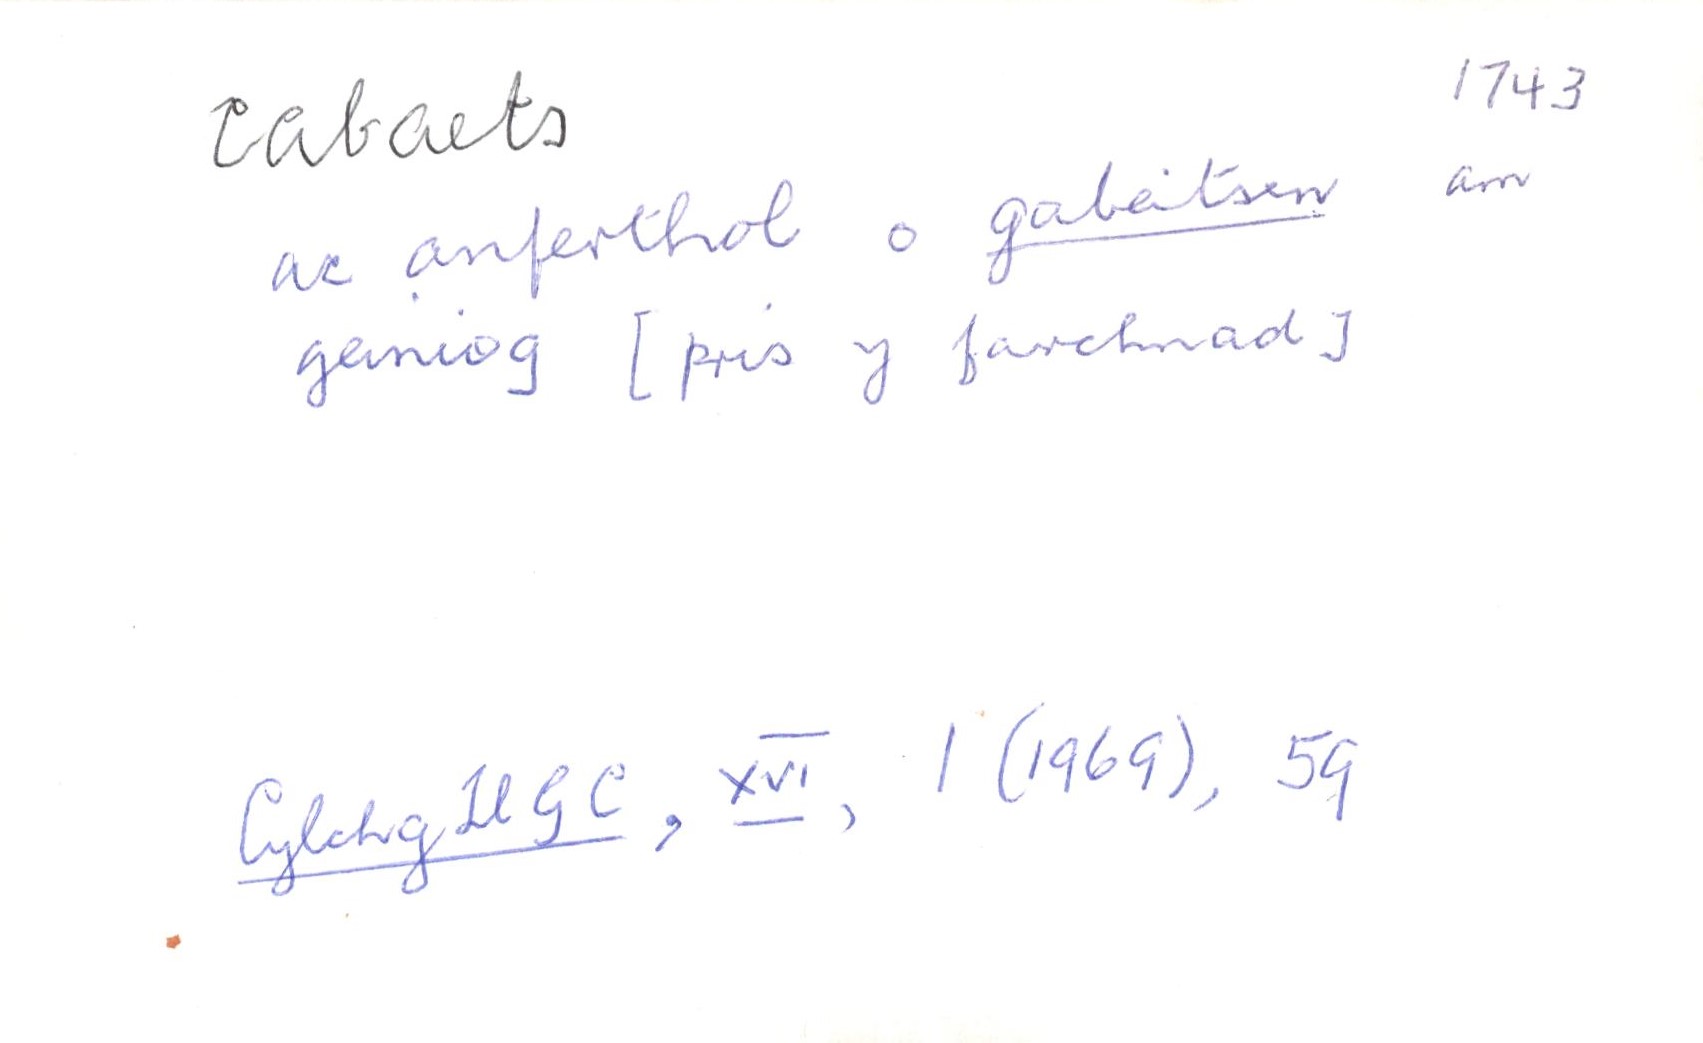 cabaets 1743
ac anferthol o gabaitsen am
geiniog [pris y farchnad]
Cylchg LlGC, XVI, 1 (1969), 59